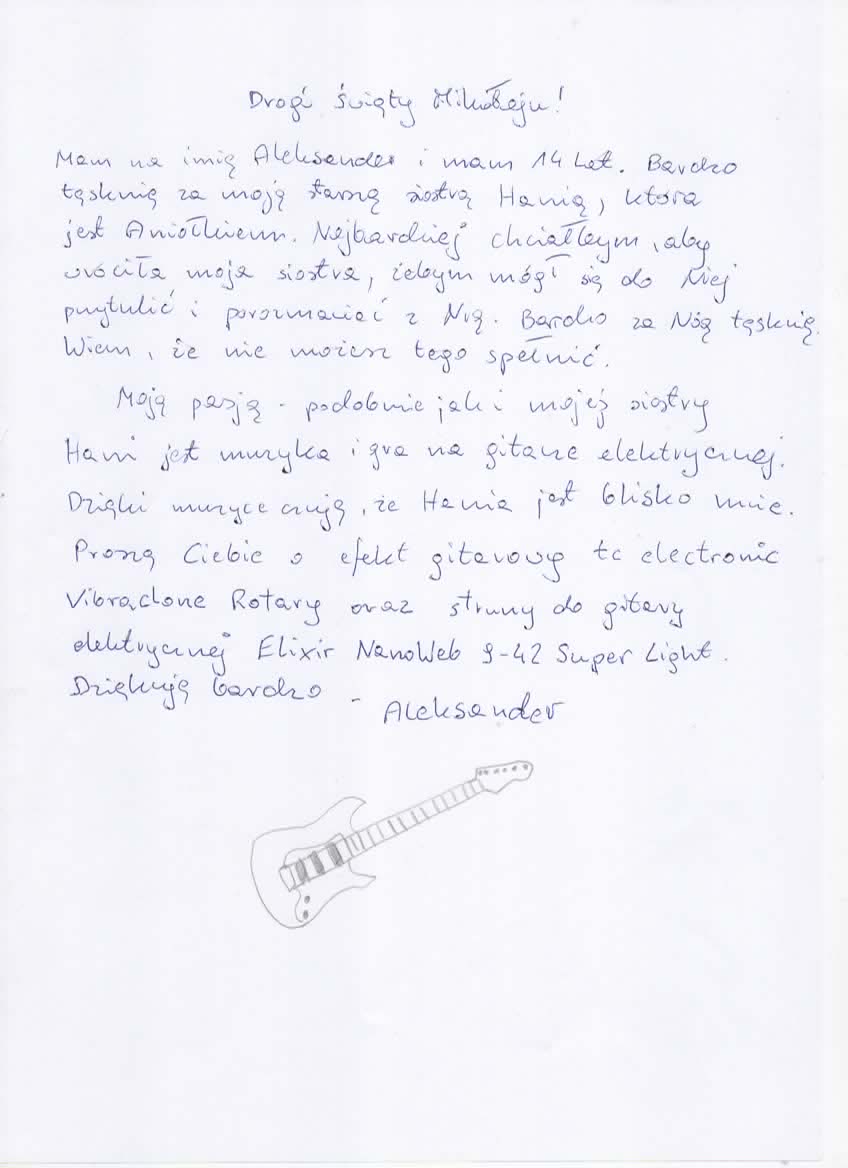 Drogi święty Mikołaju!
Mam na imię Aleksander i mam 14 lat. Bardzo
tęsknię za moją starszą siostrą Hanią, która
jest Aniołkiem. Najbardziej chciałbym, aby
wróciła moja siostra, żebym mógł się do Niej
przytulić i porozmawiać z Nią. Bardzo za Nią tęsknię.
Wiem, że nie możesz tego spełnić.
Moją pasją - podobnie jak i mojej siostry
Hani jest muzyka i gra na gitarze elektrycznej.
Dzięki muzyce czuję, że Hania jest blisko mnie.
Proszę Ciebie o efekt gitarowy tc electronic
Vibraclone Rotary oraz struny do gitary
elektrycznej Elixir NanoWeb 9-42 Super Light.
Dziękuję bardzo -
Aleksander